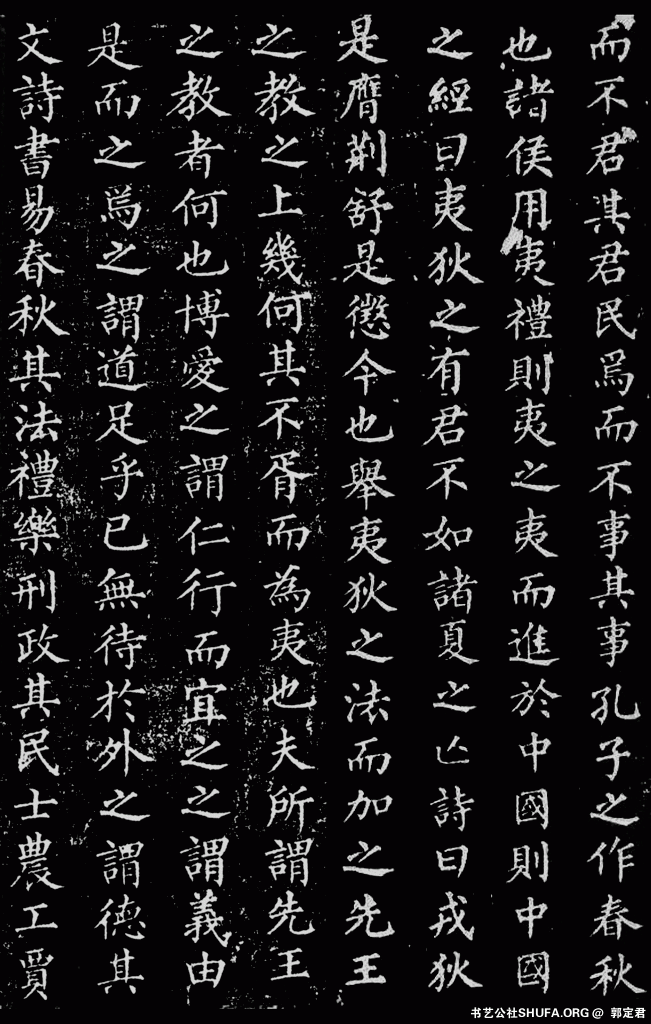 而不君其君民焉而不事其事孔子之作春秋
也諸侯用夷禮則夷之夷而進於中國則中國
之經曰夷狄之有君不如諸夏之亡詩曰戎狄
是膺荆舒是懲今也舉夷狄之法而加之先王
之教之上幾何其不胥而為夷也夫所謂先王
之教者何也博愛之謂仁行而宜之之謂義由
是而之焉之謂道足乎已無待於外之謂德其
文詩書易春秋其法禮樂刑政其民士農工賈
书艺公社SHUFA.ORG @ 郭定君